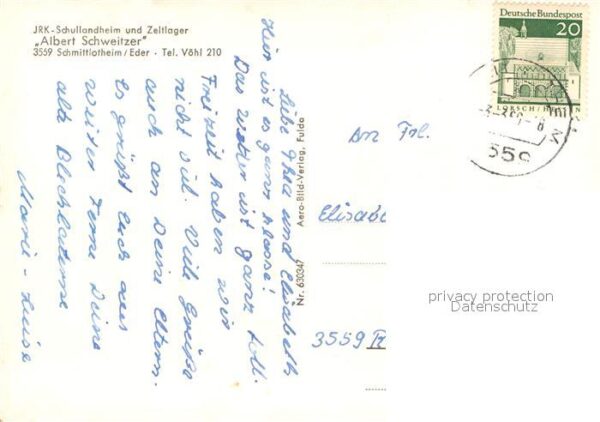 JRK-Schullandheim und Zeltlager
„Albert Schweitzer"
3559 Schmittlotheim/Eder · Tel. Vöhl 210
Liebe Thea und Elisabeth
Hier ist es ganz klasse!
Das Wetter ist ganz toll.
Freizeit haben wir
nicht viel. Viele Grüße
auch an Deine Eltern.
Es grüßt Euch aus
weiter Ferne Deine
alte Blechlaterne
Marie-Luise
Nr. 630347 Aero-Bild-Verlag, Fulda
Deutsche Bundespost
20
LORSCH/HESSEN
355
An Frl.
Elisabe
3559
privacy protection
Datenschutz